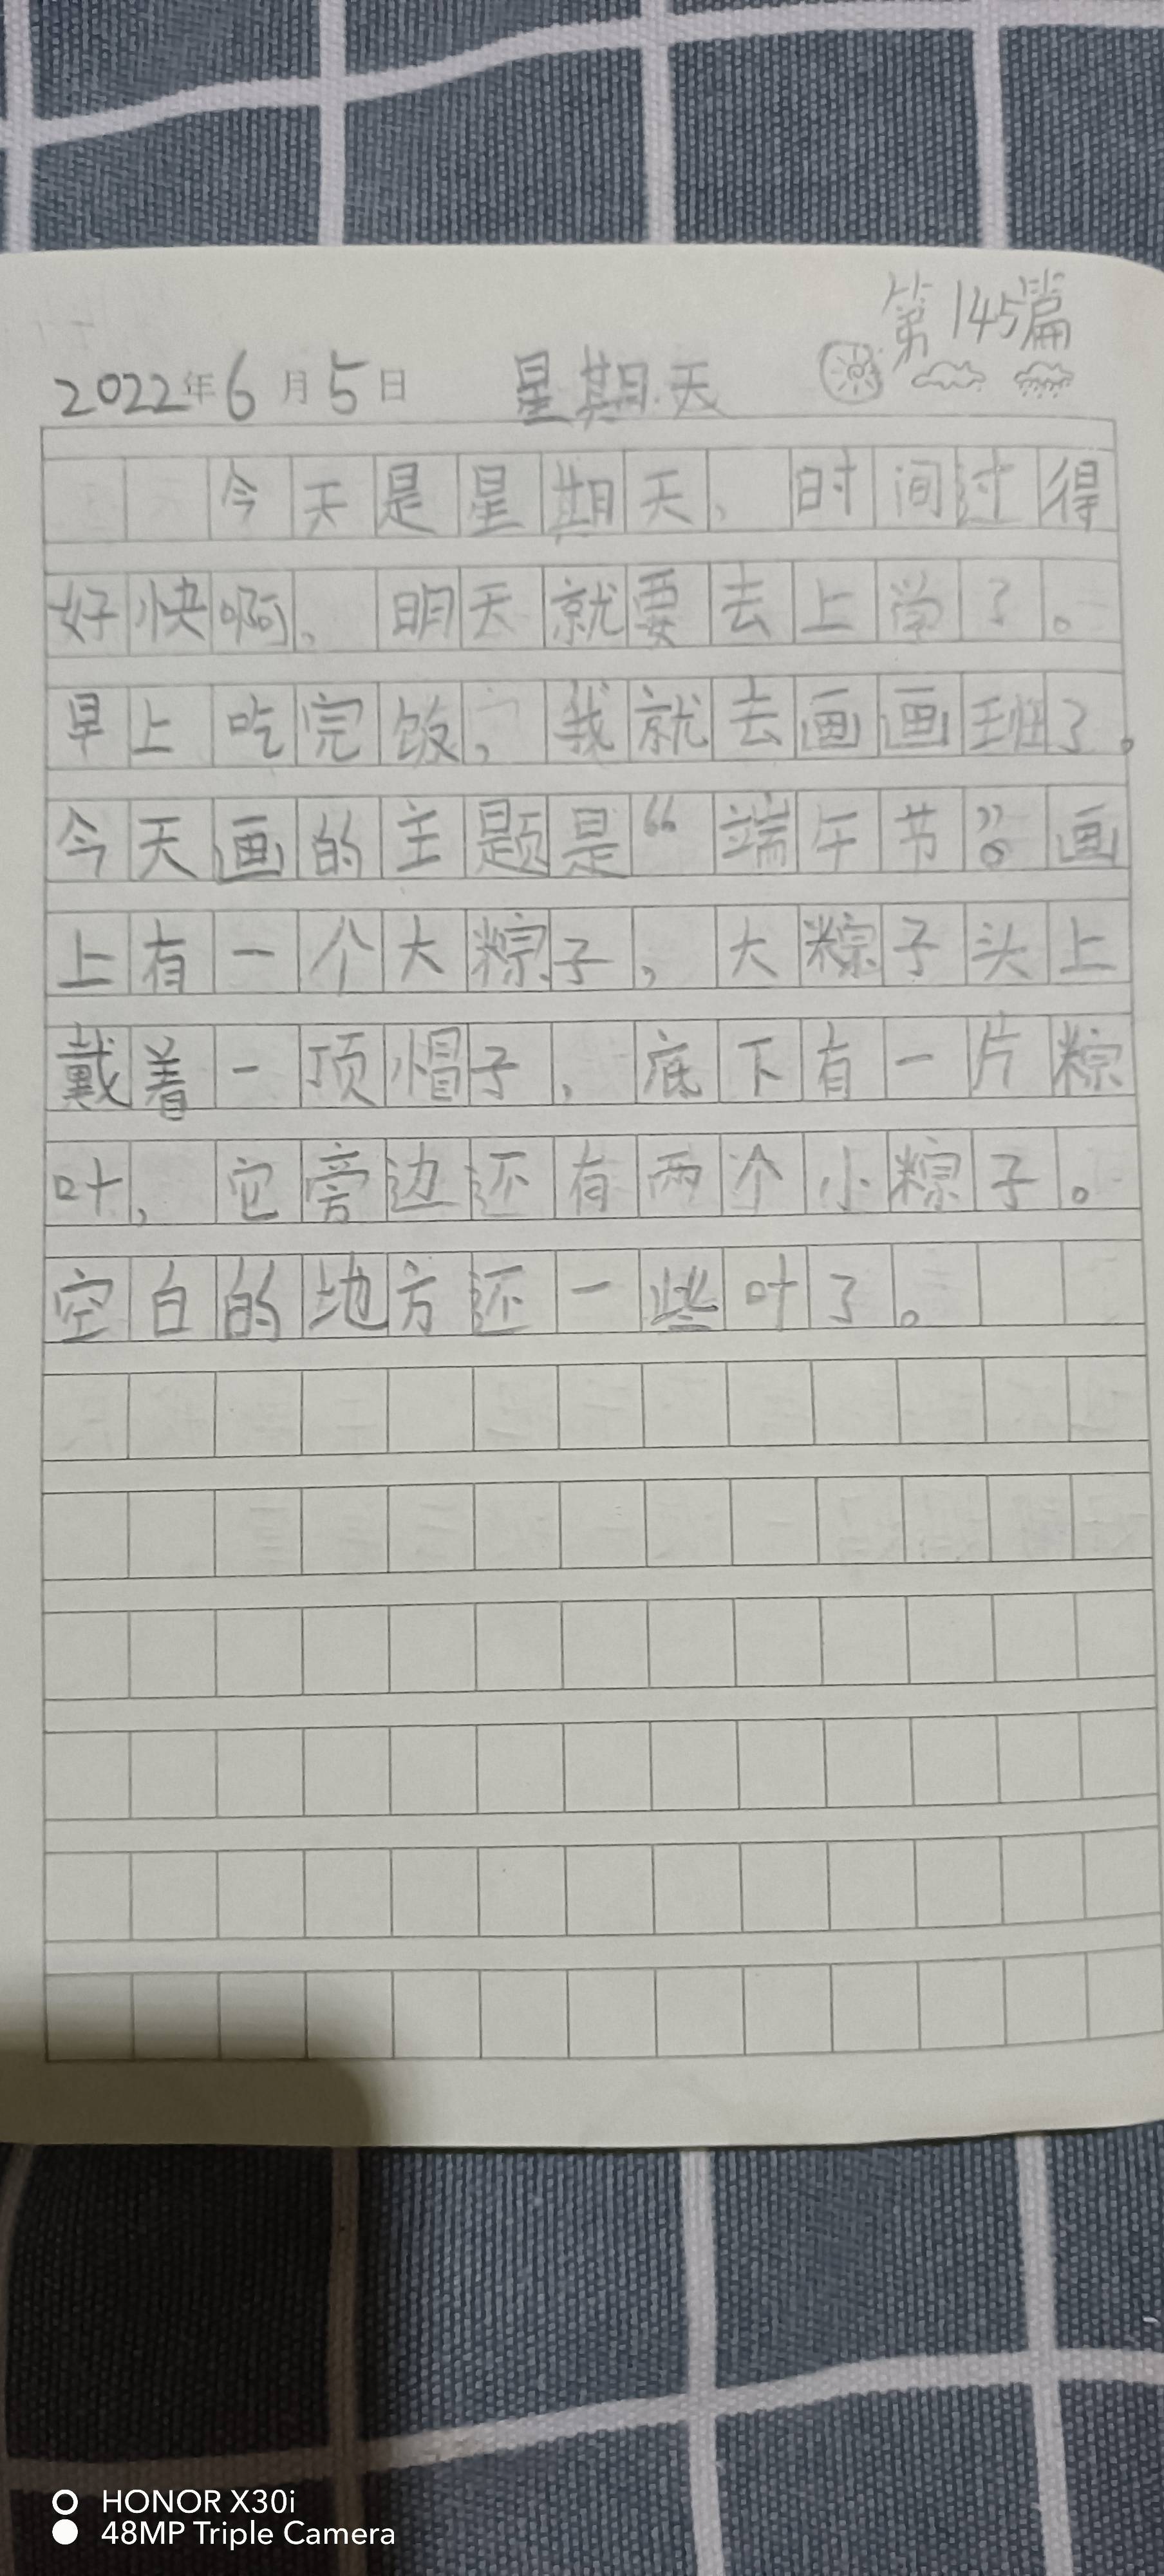 第145篇
2022年6月5日 星期天
今天是星期天，时间过得
好快啊，明天就要去上学了。
早上吃完饭，我就去画画班了。
今天画的主题是“端午节”。画
上有一个大粽子，大粽子头上
戴着一顶帽子，底下有一片粽
叶，它旁边还有两个小粽子。
空白的地方还一些叶了。
HONOR X30i
48MP Triple Camera